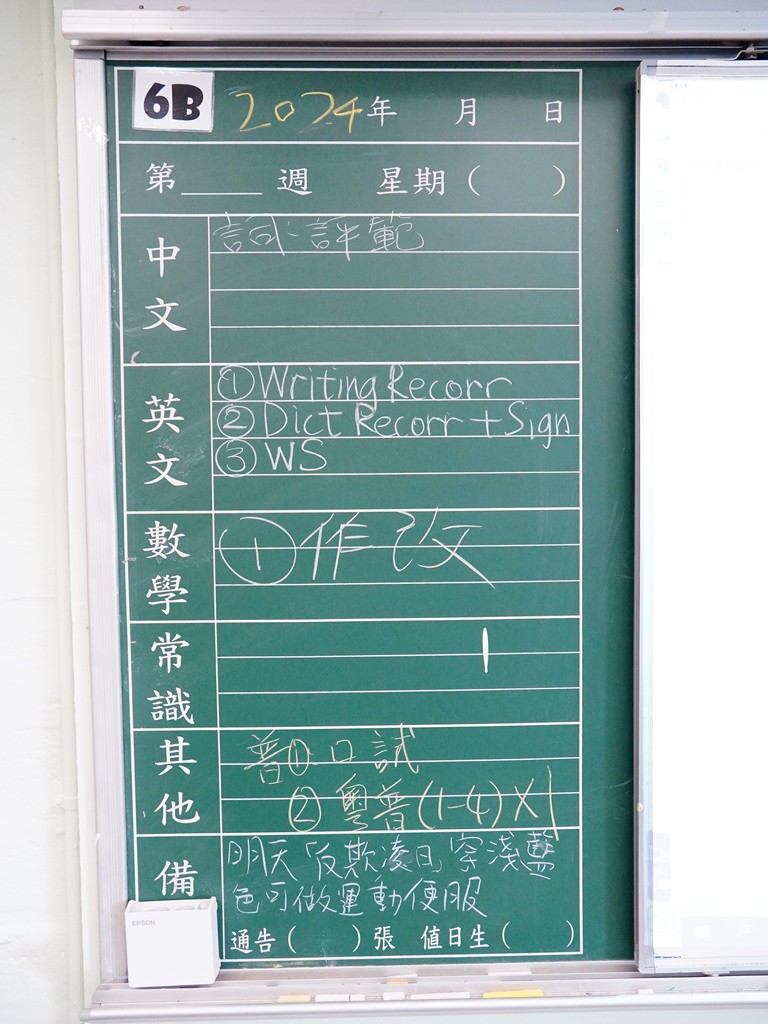 6B 2024年 月 日
第____週 星期( )
中文
詞:評範
英文
①Writing Recorr
②Dict Recorr + Sign
③WS
數學
①作改
常識
其他
普①口試
②粵普(1-4)×1
備
明天「反欺凌日」穿淺藍
色可做運動便服
通告( )張 值日生( )
EPSON